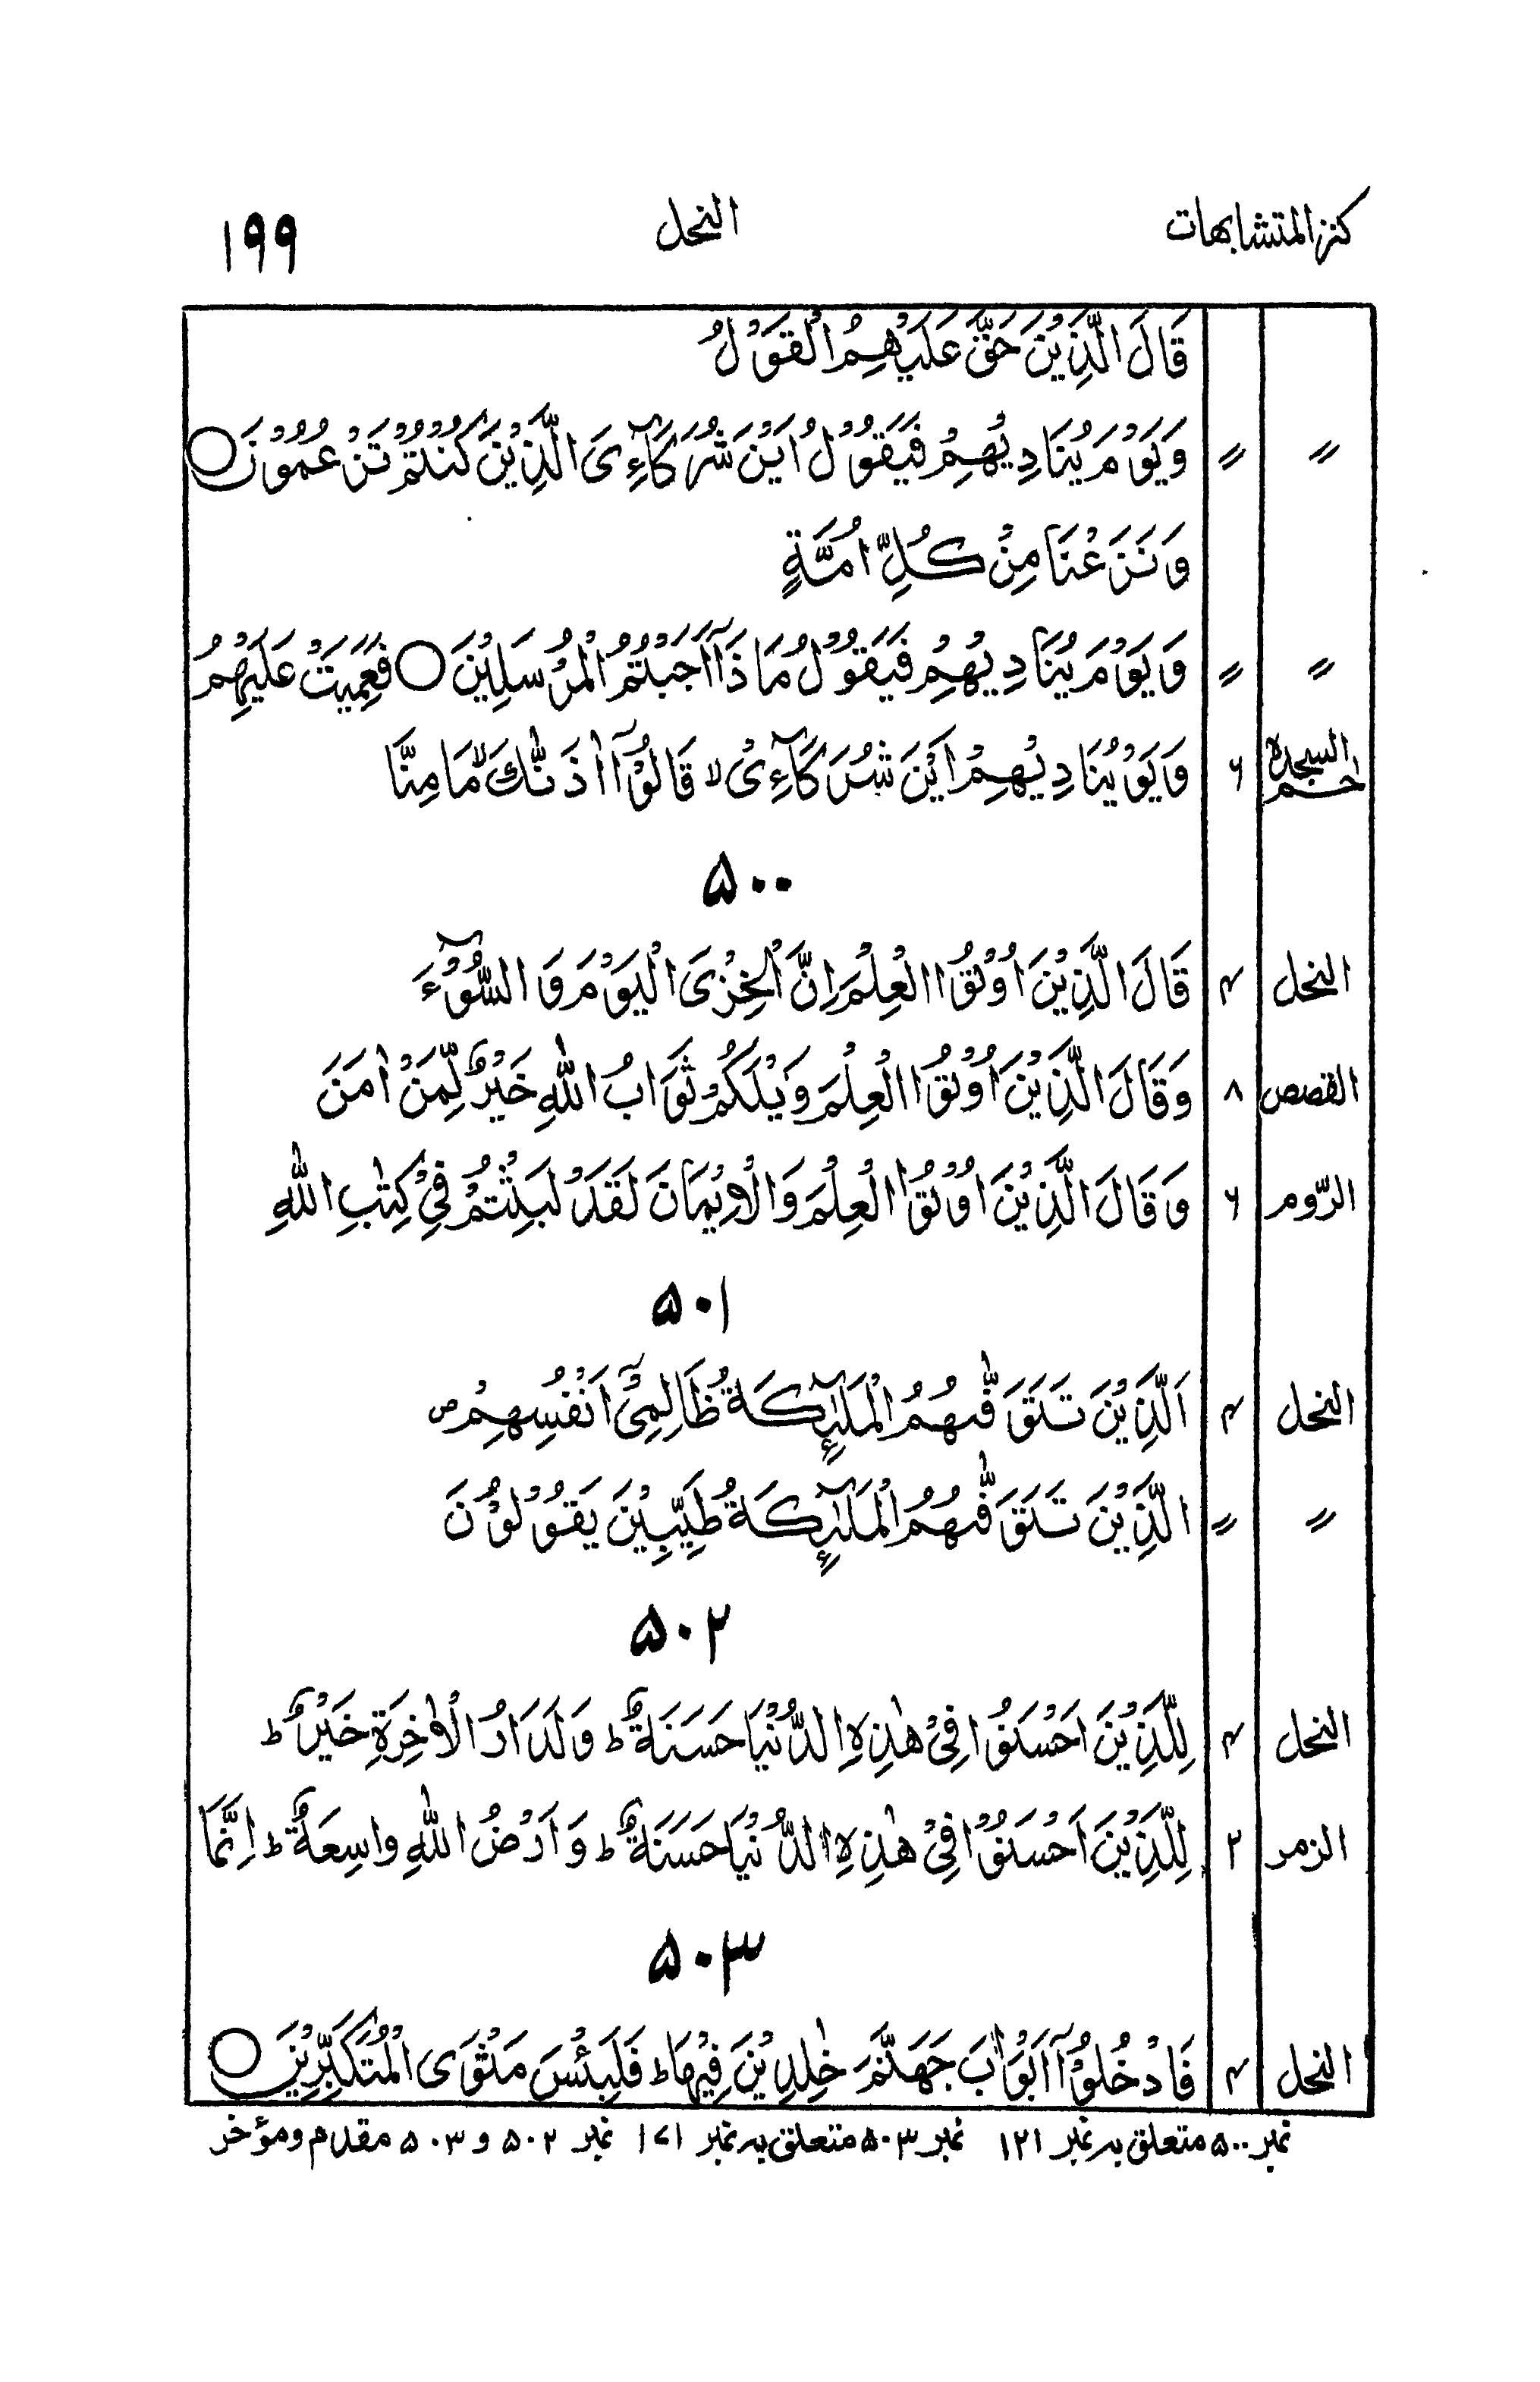 كنز المتشابهات النحل ۱۹۹
قَالَ الَّذِيْنَ حَقَّ عَلَيْهِمُ الْقَوْلُ
〃 〃 وَيَوْمَ يُنَادِيْهِمْ فَيَقُوْلُ اَيْنَ شُرَكَآءِيَ الَّذِيْنَ كُنْتُمْ تَزْعُمُوْنَ ○
وَنَزَعْنَا مِنْ كُلِّ اُمَّةٍ
〃 〃 وَيَوْمَ يُنَادِيْهِمْ فَيَقُوْلُ مَاذَآ اَجَبْتُمُ الْمُرْسَلِيْنَ ○ فَعَمِيَتْ عَلَيْهِمُ
حٰم السجدہ ۶ وَيَوْ يُنَادِيْهِمْ اَيْنَ شُرَكَآءِيْ لا قَالُوْآ اٰذَنّٰكَ مَا مِنَّا
۵۰۰
النحل ۴ قَالَ الَّذِيْنَ اُوْتُوا الْعِلْمَ اِنَّ الْخِزْيَ الْيَوْمَ وَالسُّوْٓءَ
القصص ۸ وَقَالَ الَّذِيْنَ اُوْتُوا الْعِلْمَ وَيْلَكُمْ ثَوَابُ اللّٰهِ خَيْرٌ لِّمَنْ اٰمَنَ
الرّوم ۶ وَقَالَ الَّذِيْنَ اُوْتُوا الْعِلْمَ وَالْاِيْمَانَ لَقَدْ لَبِثْتُمْ فِيْ كِتٰبِ اللّٰهِ
۵۰۱
النحل ۴ اَلَّذِيْنَ تَتَوَفّٰهُمُ الْمَلٰٓئِكَةُ ظَالِمِيْٓ اَنْفُسِهِمْ ص
〃 〃 الَّذِيْنَ تَتَوَفّٰهُمُ الْمَلٰٓئِكَةُ طَيِّبِيْنَ يَقُوْلُوْنَ
۵۰۲
النحل ۴ لِلَّذِيْنَ اَحْسَنُوْا فِيْ هٰذِهِ الدُّنْيَا حَسَنَةٌ ط وَلَدَارُ الْاٰخِرَةِ خَيْرٌ ط
الزمر ۲ لِلَّذِيْنَ اَحْسَنُوْا فِيْ هٰذِهِ الدُّنْيَا حَسَنَةٌ ط وَاَرْضُ اللّٰهِ واسِعَةٌ ط اِنَّمَا
۵۰۳
النحل ۴ فَادْخُلُوْٓا اَبْوَابَ جَهَنَّمَ خٰلِدِيْنَ فِيْهَا ط فَلَبِئْسَ مَثْوَى الْمُتَكَبِّرِيْنَ ○
نمبر ۵۰۰ متعلق بہ نمبر ۱۲۱ نمبر ۵۰۳ متعلق بہ نمبر ۱۷۱ نمبر ۵۰۲ و ۵۰۳ مقدم ومؤخر